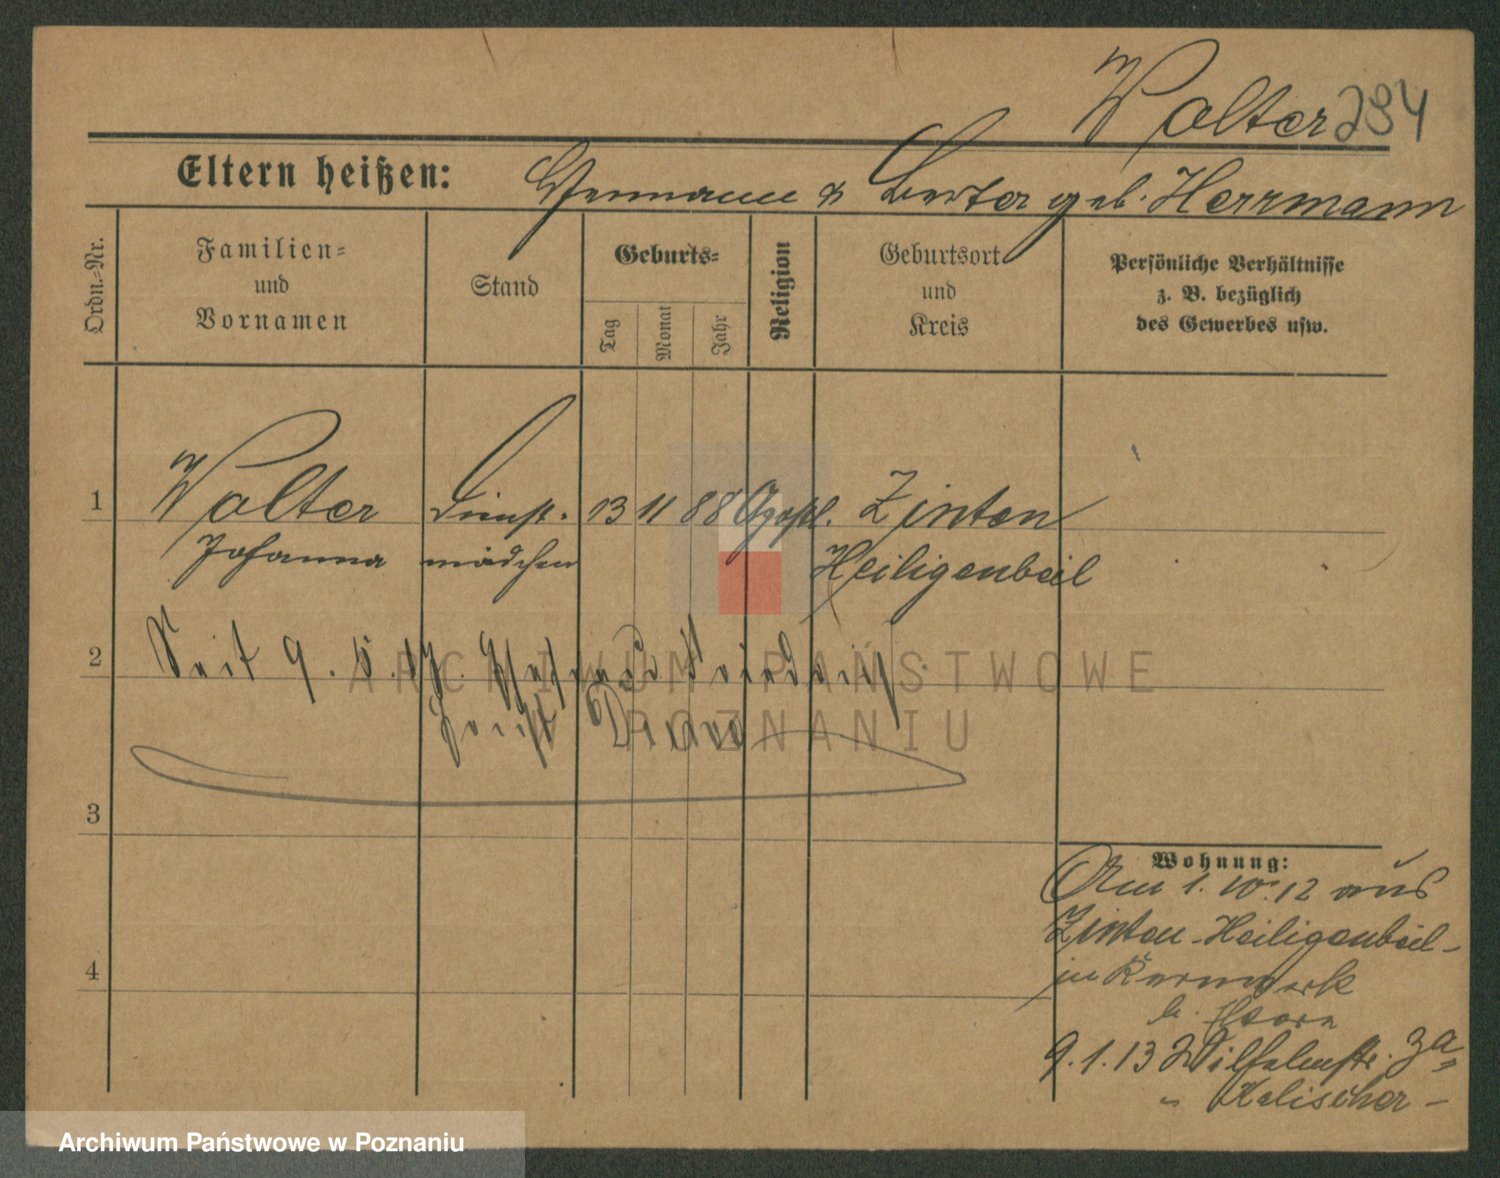 Walter 294
Eltern heißen: Hermann & Berta geb. Herrmann
Ordn.=Nr.
Familien=
und
Vornamen
Stand
Geburts=
Tag
Monat
Jahr
Religion
Geburtsort
und
Kreis
Persönliche Verhältnisse
z. B. bezüglich
des Gewerbes usw.
1 Walter Dienst- 13 11 88 Zinten
Johanna mädchen Heiligenbeil
2 Seit 9.
3
4
Wohnung:
Am 1. 10. 12 aus
Zinten-Heiligenbeil-
in Kernwerk
b.
9. 1. 13 Wilhelmstr. 3a
Kalischer -
ARCHIWUM PAŃSTWOWE
POZNANIU
Archiwum Państwowe w Poznaniu